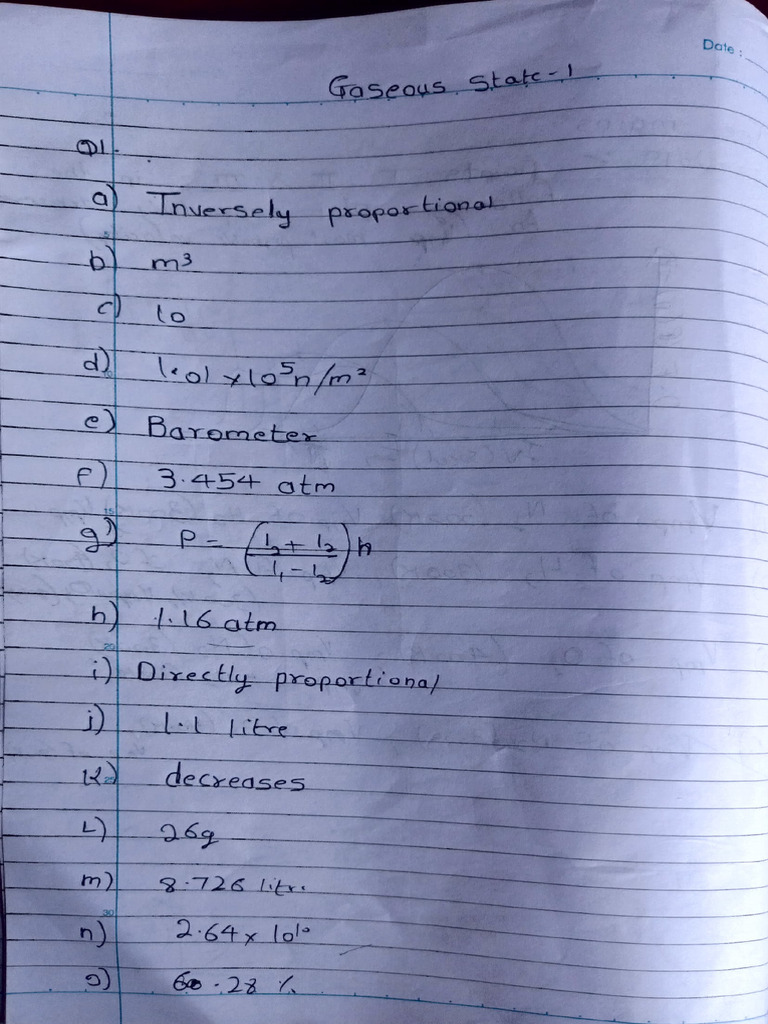 Date :
Gaseous State-1
Q1.
a) Inversely proportional
b) m³
c) 10
d) 1.01 x 10⁵ n/m²
e) Barometer
f) 3.454 atm
g) P = (l₂ + l₂ / l₁ - l₂) h
h) 1.16 atm
i) Directly proportional
j) 1.1 litre
k) decreases
L) 26g
m) 8.726 litr.
n) 2.64 x 10¹⁰
o) 60.28 %